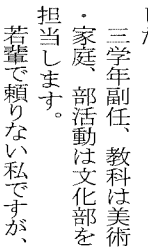 した
三学年副任、教科は美術
・家庭、部活動は文化部を
担当します。
若輩で頼りない私ですが、